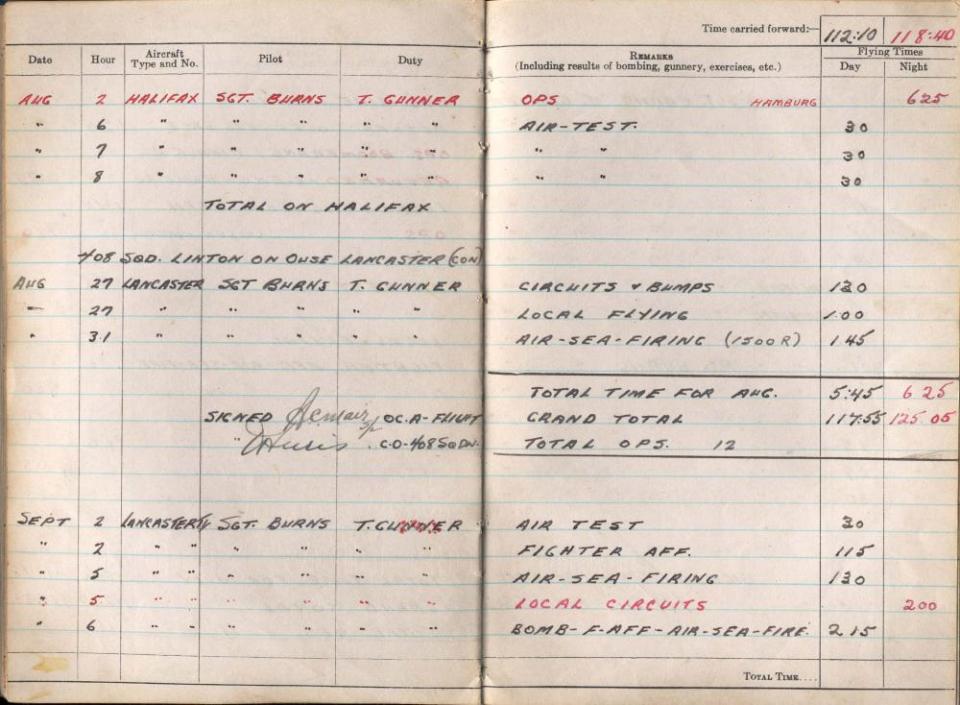 Time carried forward:— 112:10 118:40
Date Hour Aircraft Type and No. Pilot Duty REMARKS (Including results of bombing, gunnery, exercises, etc.) Flying Times Day Night
AUG 2 HALIFAX SGT. BURNS T. GUNNER OPS HAMBURG 625
" 6 " " " " " AIR-TEST. 30
" 7 " " " " " " " 30
" 8 " " " " " " " 30
TOTAL ON HALIFAX
408 SQD. LINTON ON OUSE LANCASTER (CON)
AUG 27 LANCASTER SGT BURNS T. GUNNER CIRCUITS & BUMPS 130
" 27 " " " " " LOCAL FLYING 1.00
" 31 " " " " " AIR-SEA-FIRING (1500 R) 1.45
TOTAL TIME FOR AUG. 5:45 6 25
SIGNED OC.A-FLIGHT GRAND TOTAL 117:55 125 05
" C.O-408 SQDN. TOTAL OPS. 12
SEPT 2 LANCASTER SGT. BURNS T. GUNNER AIR TEST 30
" 2 " " " " " " FIGHTER AFF. 115
" 5 " " " " " " AIR-SEA-FIRING 130
" 5 " " " " " " LOCAL CIRCUITS 200
" 6 " " " " " " BOMB-F-AFF-AIR-SEA-FIRE. 2 15
TOTAL TIME....